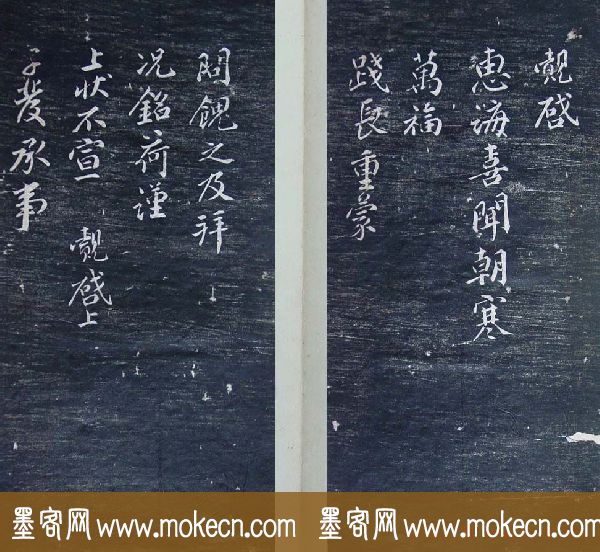 觀啓
惠誨喜聞朝寒
萬福
踐長重蒙
問餽之及拜
况銘荷謹
上狀不宣 觀啓上
子發承事
墨客网 www.mokecn.com 墨客网 www.mokecn.com